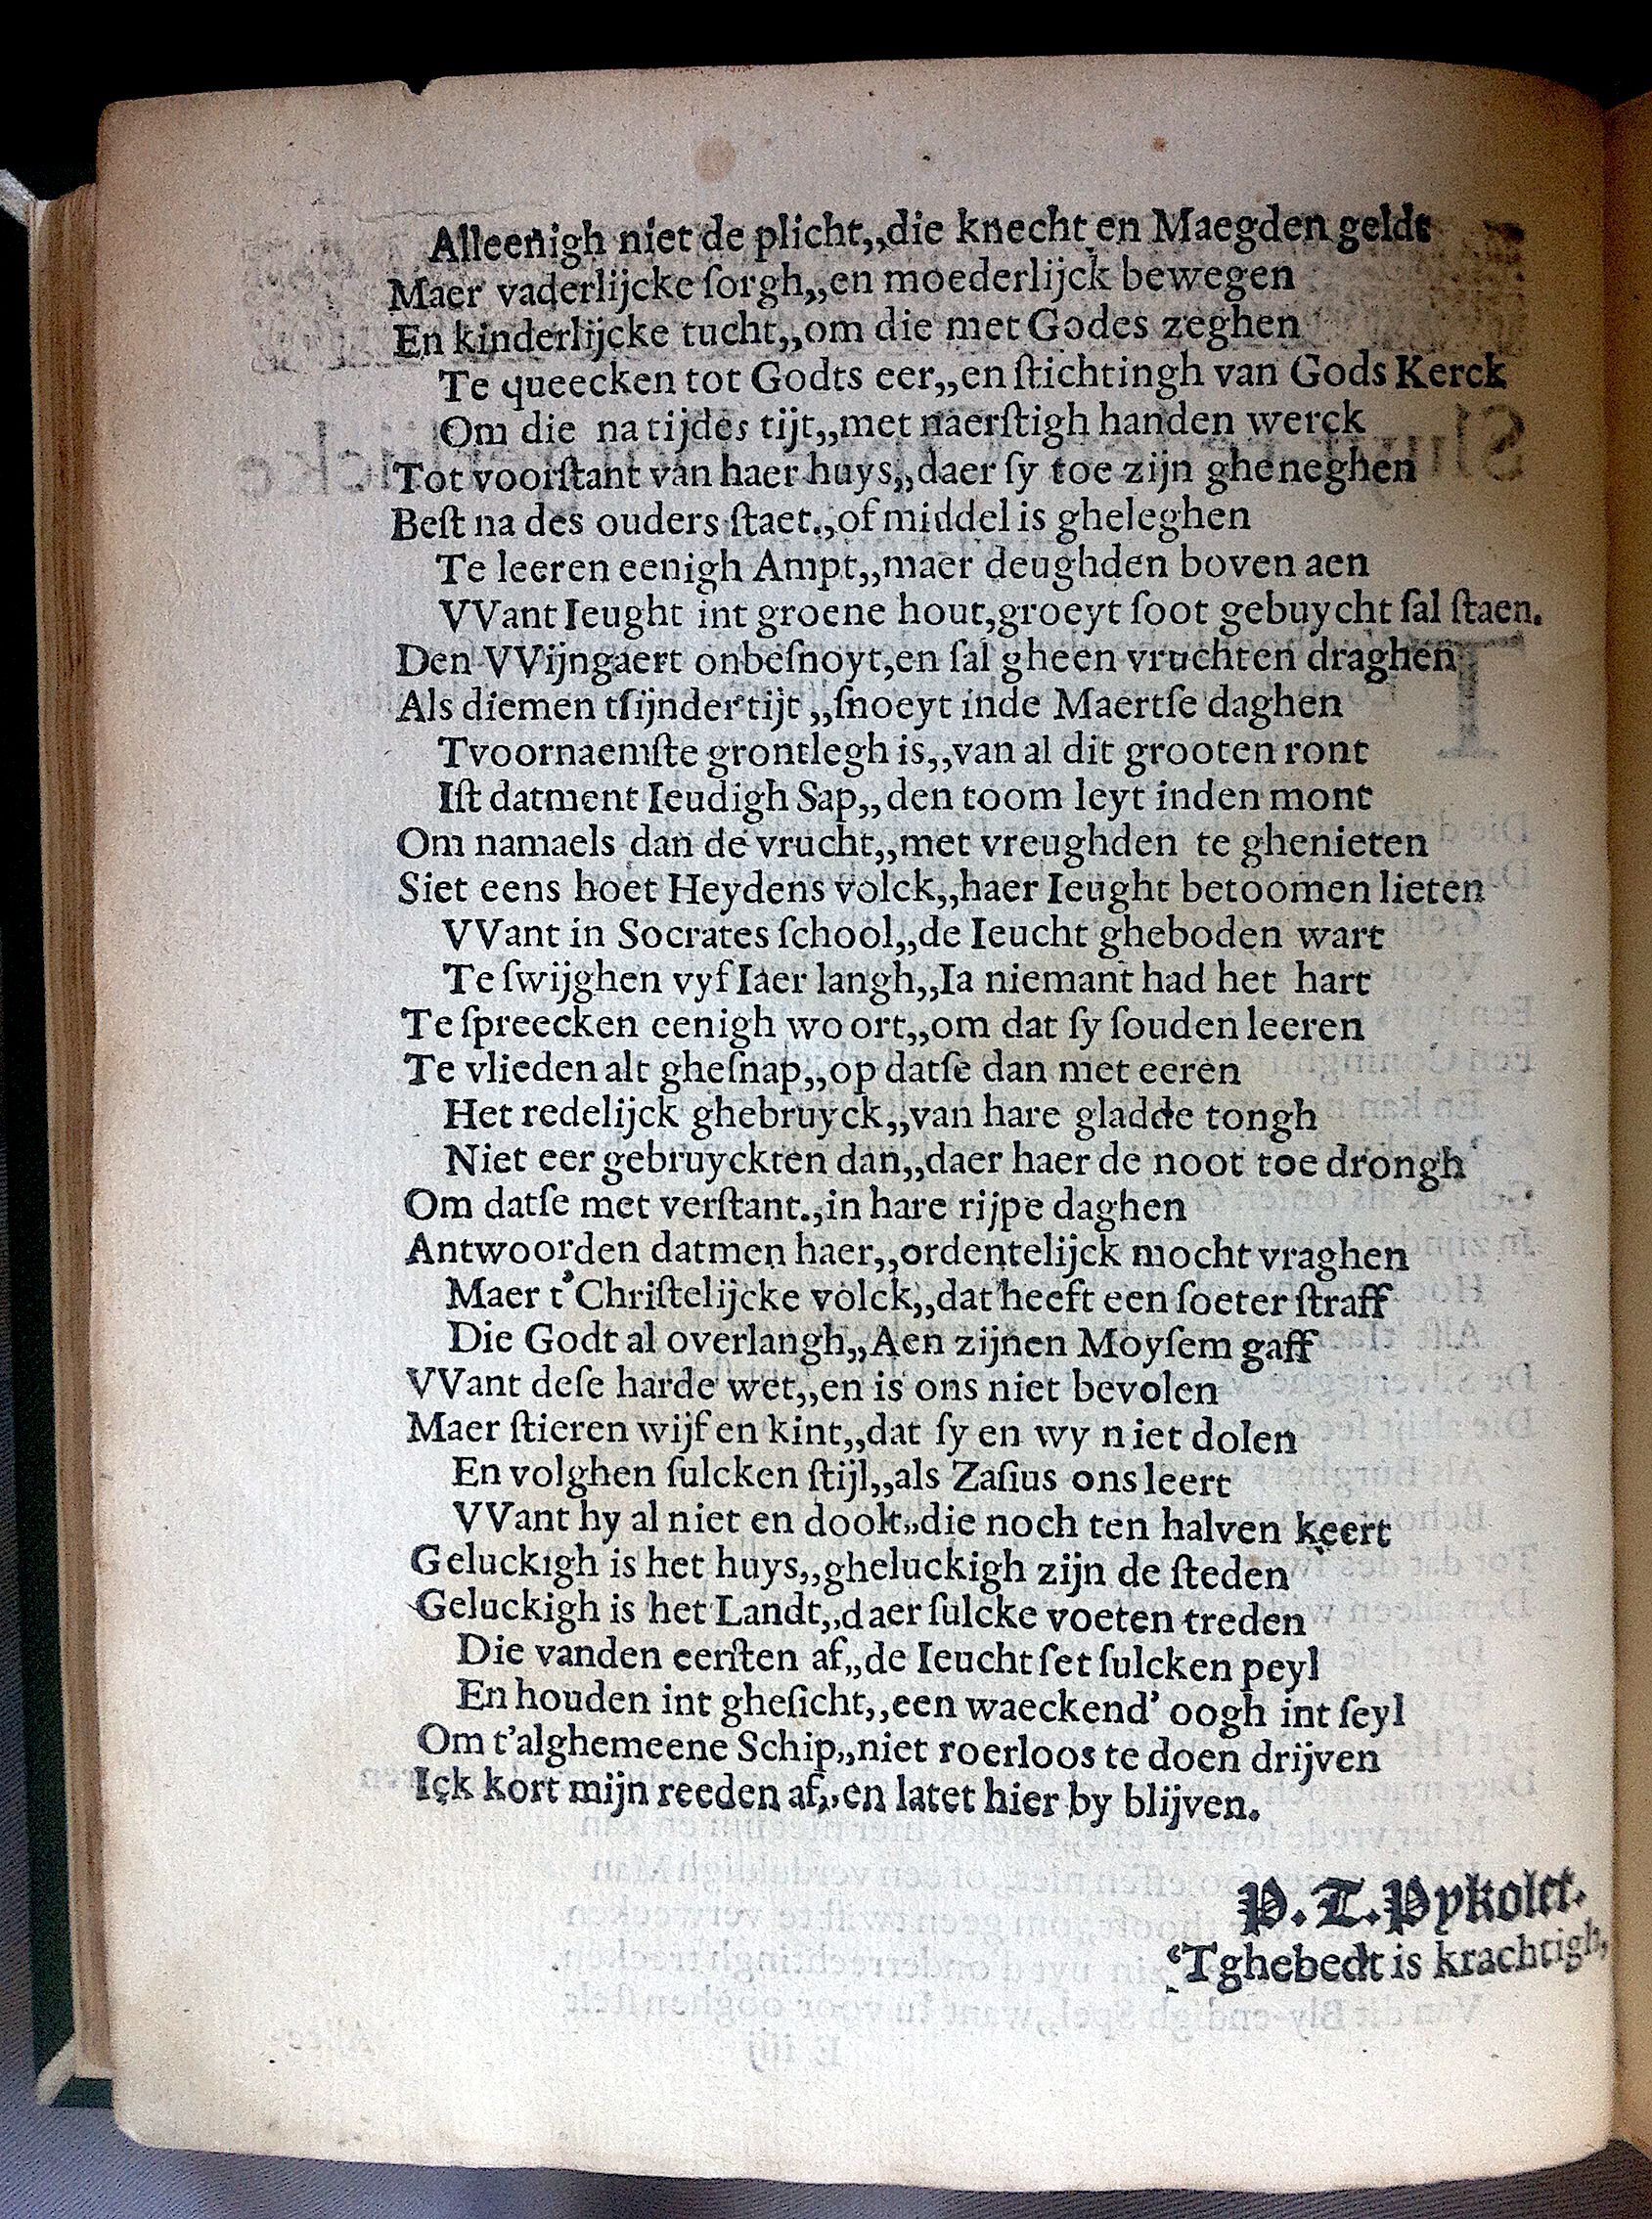 Alleenigh niet de plicht,,die knecht en Maegden geldt
Maer vaderlijcke ſorgh,,en moederlijck bewegen
En kinderlijcke tucht,,om die met Godes zeghen
Te queecken tot Godts eer,,en ſtichtingh van Gods Kerck
Om die na tijdes tijt,,met naerſtigh handen werck
Tot voorſtant van haer huys,,daer ſy toe zijn gheneghen
Beſt na des ouders ſtaet.,of middel is gheleghen
Te leeren eenigh Ampt,,maer deughden boven aen
VVant Ieught int groene hout,groeyt ſoot gebuycht ſal ſtaen.
Den VVijngaert onbeſnoyt,en ſal gheen vruchten draghen
Als diemen tſijnder tijt ,,ſnoeyt inde Maertſe daghen
Tvoornaemſte grontlegh is,,van al dit grooten ront
Iſt datment Ieudigh Sap,,den toom leyt inden mont
Om namaels dan de vrucht,,met vreughden te ghenieten
Siet eens hoet Heydens volck,,haer Ieught betoomen lieten
VVant in Socrates ſchool,,de Ieucht gheboden wart
Te ſwijghen vyf Iaer langh,,Ia niemant had het hart
Te ſpreecken eenigh woort,,om dat ſy ſouden leeren
Te vlieden alt gheſnap,,op datſe dan met eeren
Het redelijck ghebruyck,,van hare gladde tongh
Niet eer gebruyckten dan,,daer haer de noot toe drongh
Om datſe met verſtant.,in hare rijpe daghen
Antwoorden datmen haer,,ordentelijck mocht vraghen
Maer t'Chriſtelijcke volck,,dat heeft een ſoeter ſtraff
Die Godt al overlangh,,Aen zijnen Moyſem gaff
VVant deſe harde wet,,en is ons niet bevolen
Maer ſtieren wijf en kint,,dat ſy en wy niet dolen
En volghen ſulcken ſtijl,,als Zaſius ons leert
VVant hy al niet en doolt,,die noch ten halven keert
Geluckigh is het huys,,gheluckigh zijn de ſteden
Geluckigh is het Landt,,daer ſulcke voeten treden
Die vanden eerſten af,,de Ieucht ſet ſulcken peyl
En houden int gheſicht,,een waeckend' oogh int ſeyl
Om t'alghemeene Schip,,niet roerloos te doen drijven
Ick kort mijn reeden af,,en latet hier by blijven.
P. T. Pykolet.
'Tghebedt is krachtigh,